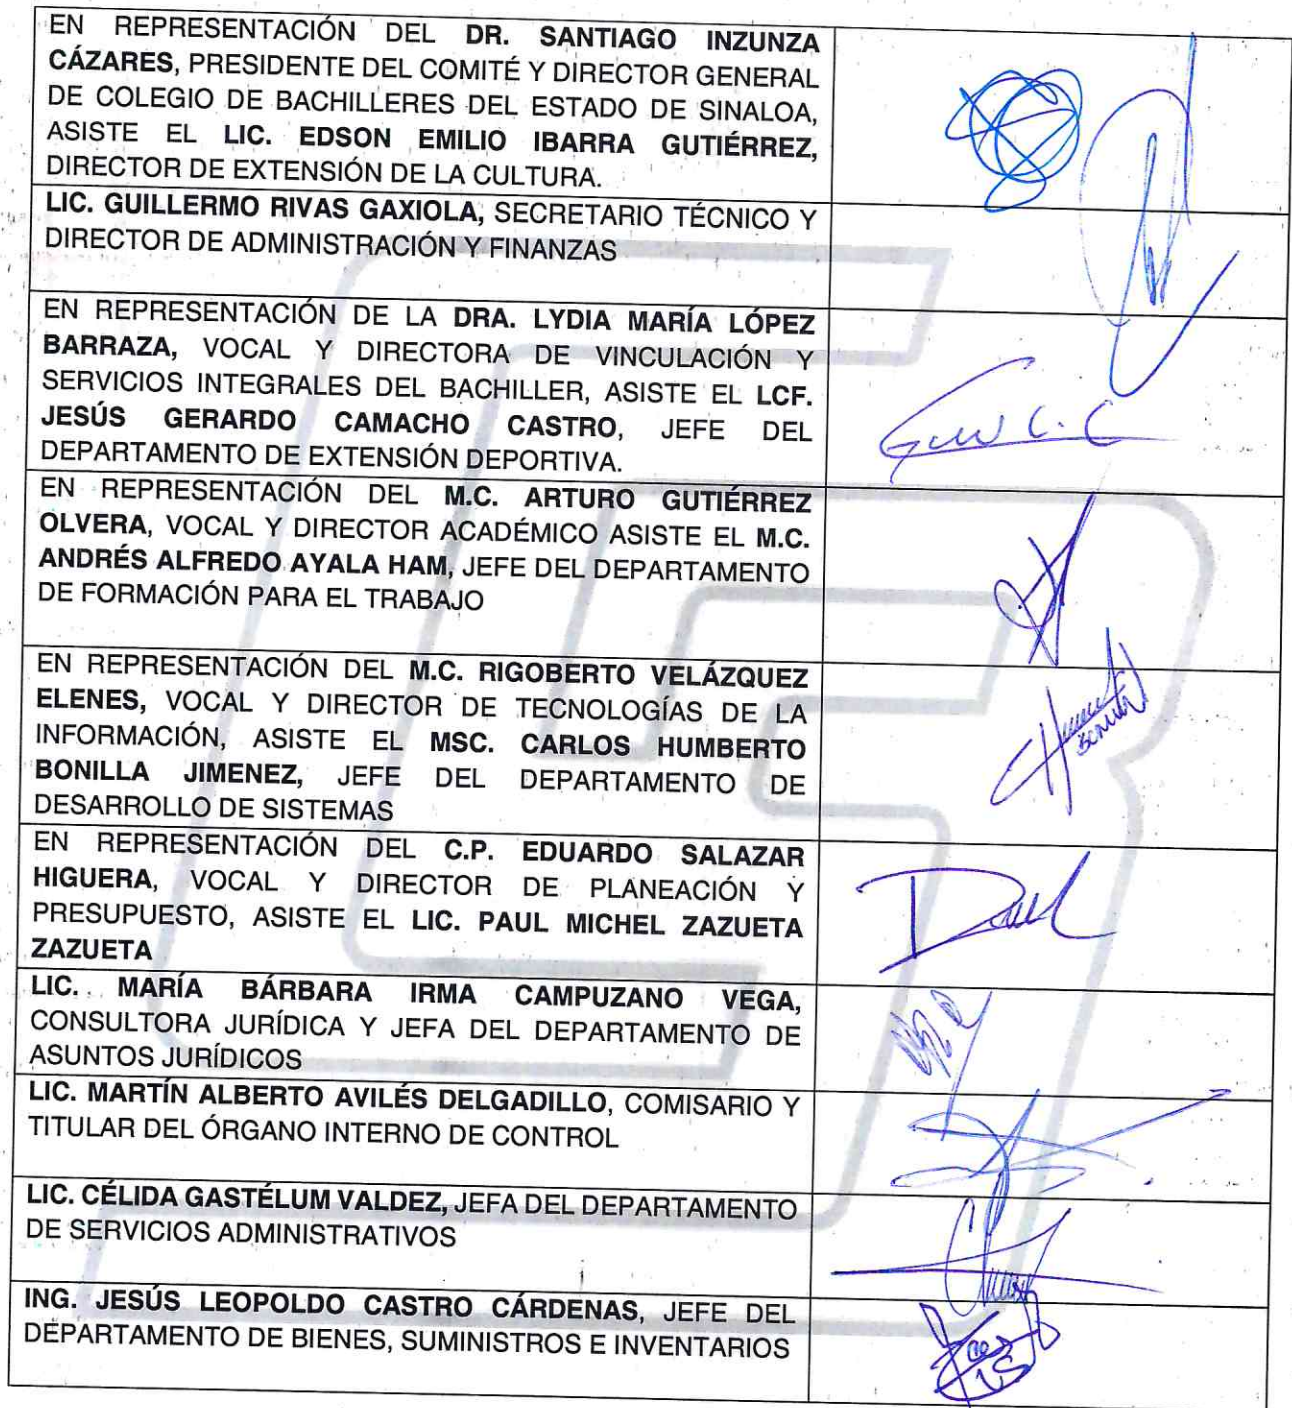 EN REPRESENTACIÓN DEL DR. SANTIAGO INZUNZA
CÁZARES, PRESIDENTE DEL COMITÉ Y DIRECTOR GENERAL
DE COLEGIO DE BACHILLERES DEL ESTADO DE SINALOA,
ASISTE EL LIC. EDSON EMILIO IBARRA GUTIÉRREZ,
DIRECTOR DE EXTENSIÓN DE LA CULTURA.
LIC. GUILLERMO RIVAS GAXIOLA, SECRETARIO TÉCNICO Y
DIRECTOR DE ADMINISTRACIÓN Y FINANZAS
EN REPRESENTACIÓN DE LA DRA. LYDIA MARÍA LÓPEZ
BARRAZA, VOCAL Y DIRECTORA DE VINCULACIÓN Y
SERVICIOS INTEGRALES DEL BACHILLER, ASISTE EL LCF.
JESÚS GERARDO CAMACHO CASTRO, JEFE DEL
DEPARTAMENTO DE EXTENSIÓN DEPORTIVA.
EN REPRESENTACIÓN DEL M.C. ARTURO GUTIÉRREZ
OLVERA, VOCAL Y DIRECTOR ACADÉMICO ASISTE EL M.C.
ANDRÉS ALFREDO AYALA HAM, JEFE DEL DEPARTAMENTO
DE FORMACIÓN PARA EL TRABAJO
EN REPRESENTACIÓN DEL M.C. RIGOBERTO VELÁZQUEZ
ELENES, VOCAL Y DIRECTOR DE TECNOLOGÍAS DE LA
INFORMACIÓN, ASISTE EL MSC. CARLOS HUMBERTO
BONILLA JIMENEZ, JEFE DEL DEPARTAMENTO DE
DESARROLLO DE SISTEMAS
EN REPRESENTACIÓN DEL C.P. EDUARDO SALAZAR
HIGUERA, VOCAL Y DIRECTOR DE PLANEACIÓN Y
PRESUPUESTO, ASISTE EL LIC. PAUL MICHEL ZAZUETA
ZAZUETA
LIC. MARÍA BÁRBARA IRMA CAMPUZANO VEGA,
CONSULTORA JURÍDICA Y JEFA DEL DEPARTAMENTO DE
ASUNTOS JURÍDICOS
LIC. MARTÍN ALBERTO AVILÉS DELGADILLO, COMISARIO Y
TITULAR DEL ÓRGANO INTERNO DE CONTROL
LIC. CÉLIDA GASTÉLUM VALDEZ, JEFA DEL DEPARTAMENTO
DE SERVICIOS ADMINISTRATIVOS
ING. JESÚS LEOPOLDO CASTRO CÁRDENAS, JEFE DEL
DEPARTAMENTO DE BIENES, SUMINISTROS E INVENTARIOS